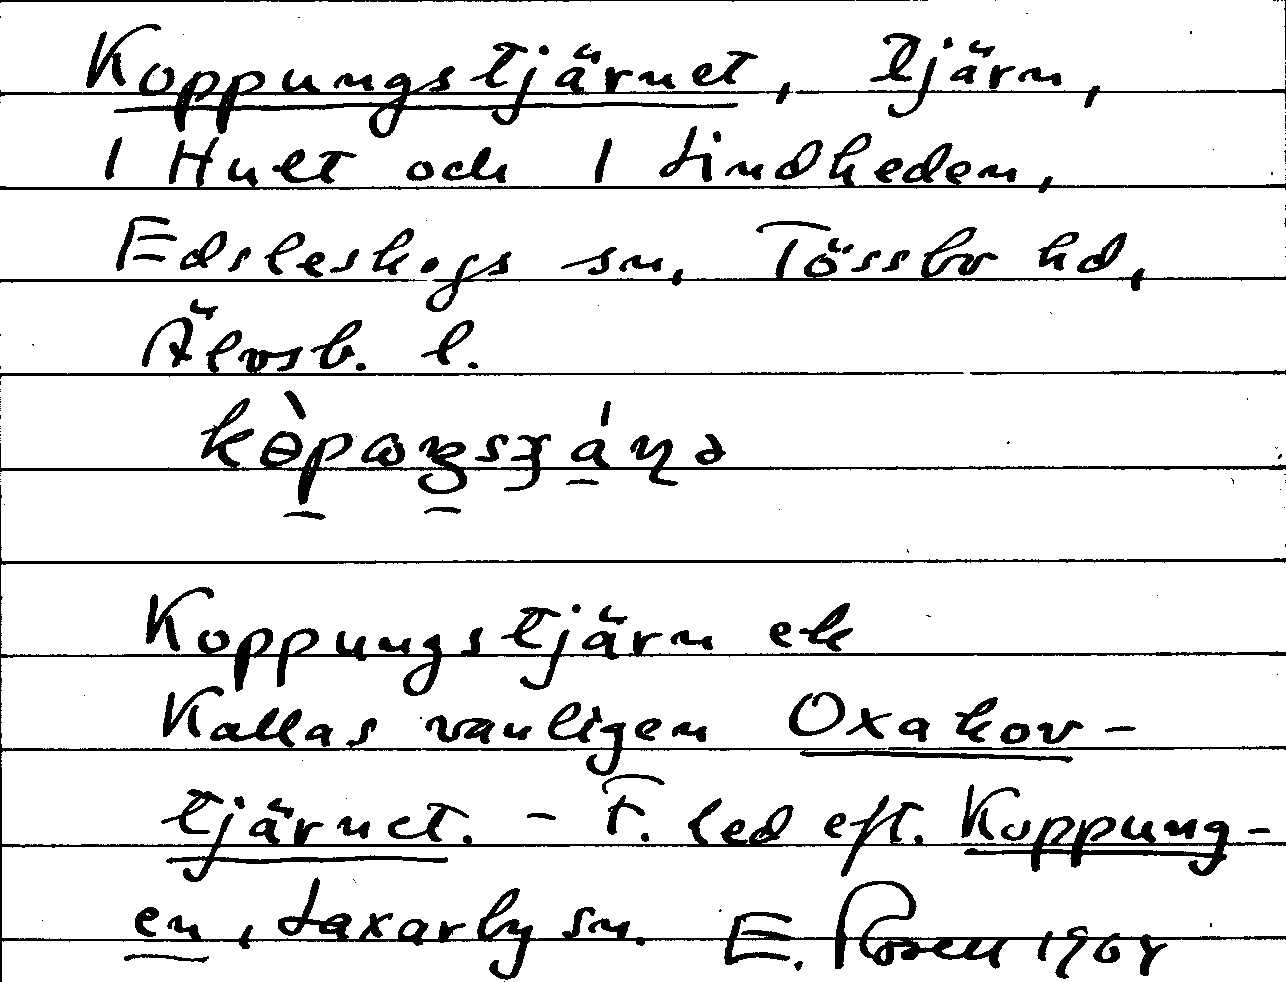 Koppungstjärnet, tjärn,
1 Hult och 1 Lindheden,
Edsleskogs sn, Tössbo hd,
Älvsb. l.
Koppungstjärn ek
Kallas vanligen Oxakov-
tjärnet. - F. led eft. Koppung-
en, Laxarby sn. E. Rosell